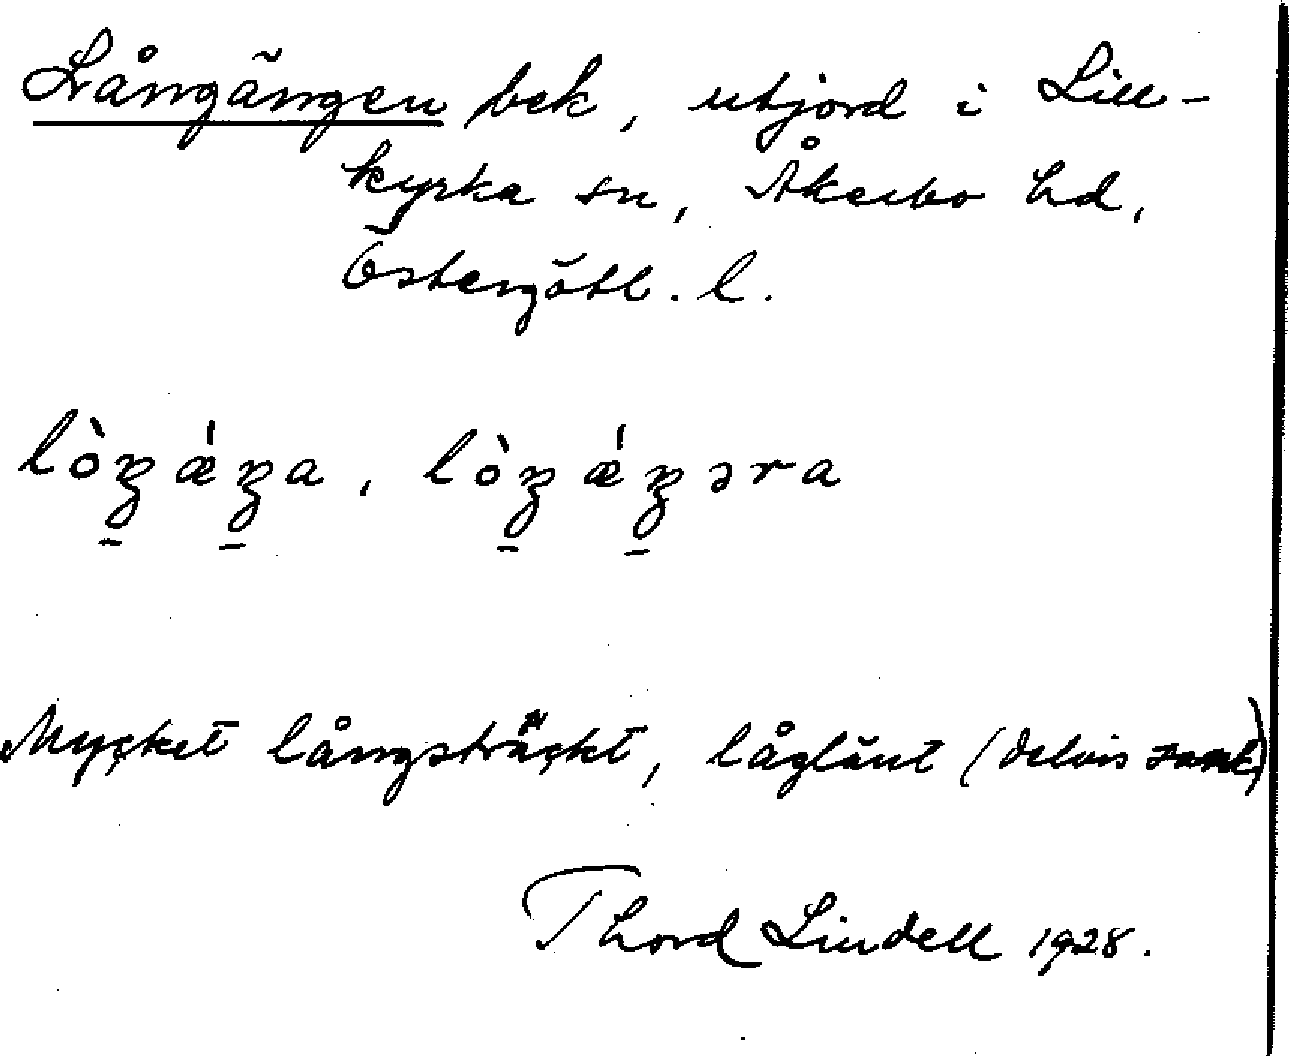 Långängen bek, utjord i Lill-
kyrka sn, Åkerbo hd,
Östergötl. l.
lòŋǽŋa, lòŋǽŋəra
Mycket långsträckt, låglänt (delvis sank)
Thord Lindell 1928.